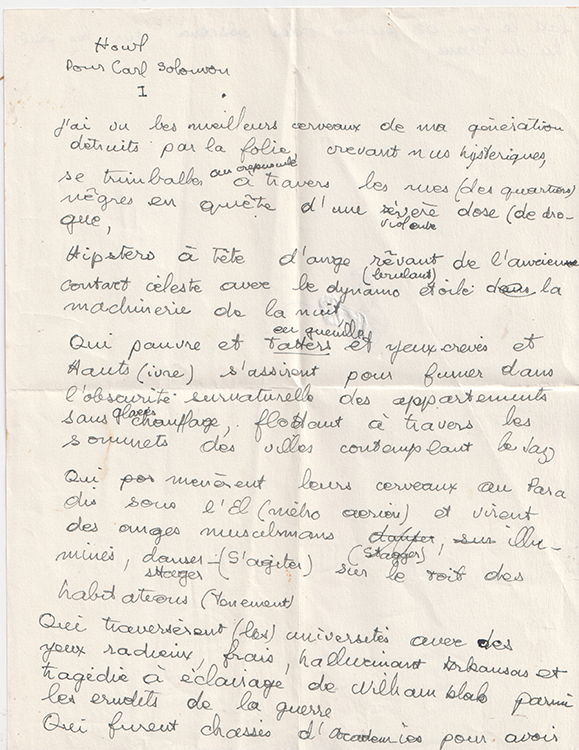 Howl
Pour Carl Solomon
I
J'ai vu les meilleurs cerveaux de ma génération
détruits par la folie, crevant nus hysteriques,
au crepuscule
se trimballer à travers les rues (des quartiers)
nègres en quiête d'une sévère dose (de dro-
violente
gue,
Hipsters à tête d'ange rêvant de l'ancienne
(brulant)
contact céleste avec le dynamo étoilé dans la
machinerie de la nuit
en guenilles
Qui pauvre et tatters et yeux crevés et
Hauts (ivre) s'assirent pour fumer dans
l'obscurité surnaturelle des appartements
glacés
sans chauffage, flottant à travers les
sommets des villes contemplant le Jazz
Qui menèrent leurs cerveaux au Para
dis sous l'El (métro aerien) et virent
des anges musulmans danser, sur illu-
(Stagger)
minés, danser-(S'agiter) sur le toit des
stagger
habitations (tenement)
Qui traversèrent (les) universités avec des
yeux radieux, frais, hallucinant Arkansas et
tragédie à éclairage de William blak parmi
les erudits de la guerre
Qui furent chassés d'Academies pour avoir